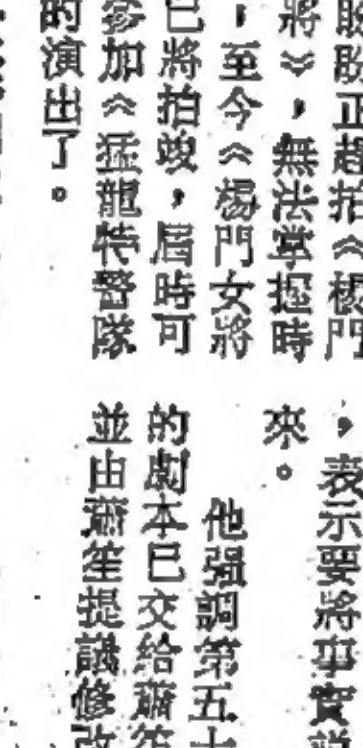 正趕拍《楊門
將》，無法掌握時
，至今《楊門女將
已將拍竣，屆時可
參加《猛龍特警隊
的演出了。
，表示要將事實
來。
他強調第五
的劇本已交給蕭笙
並由蕭笙提議修改